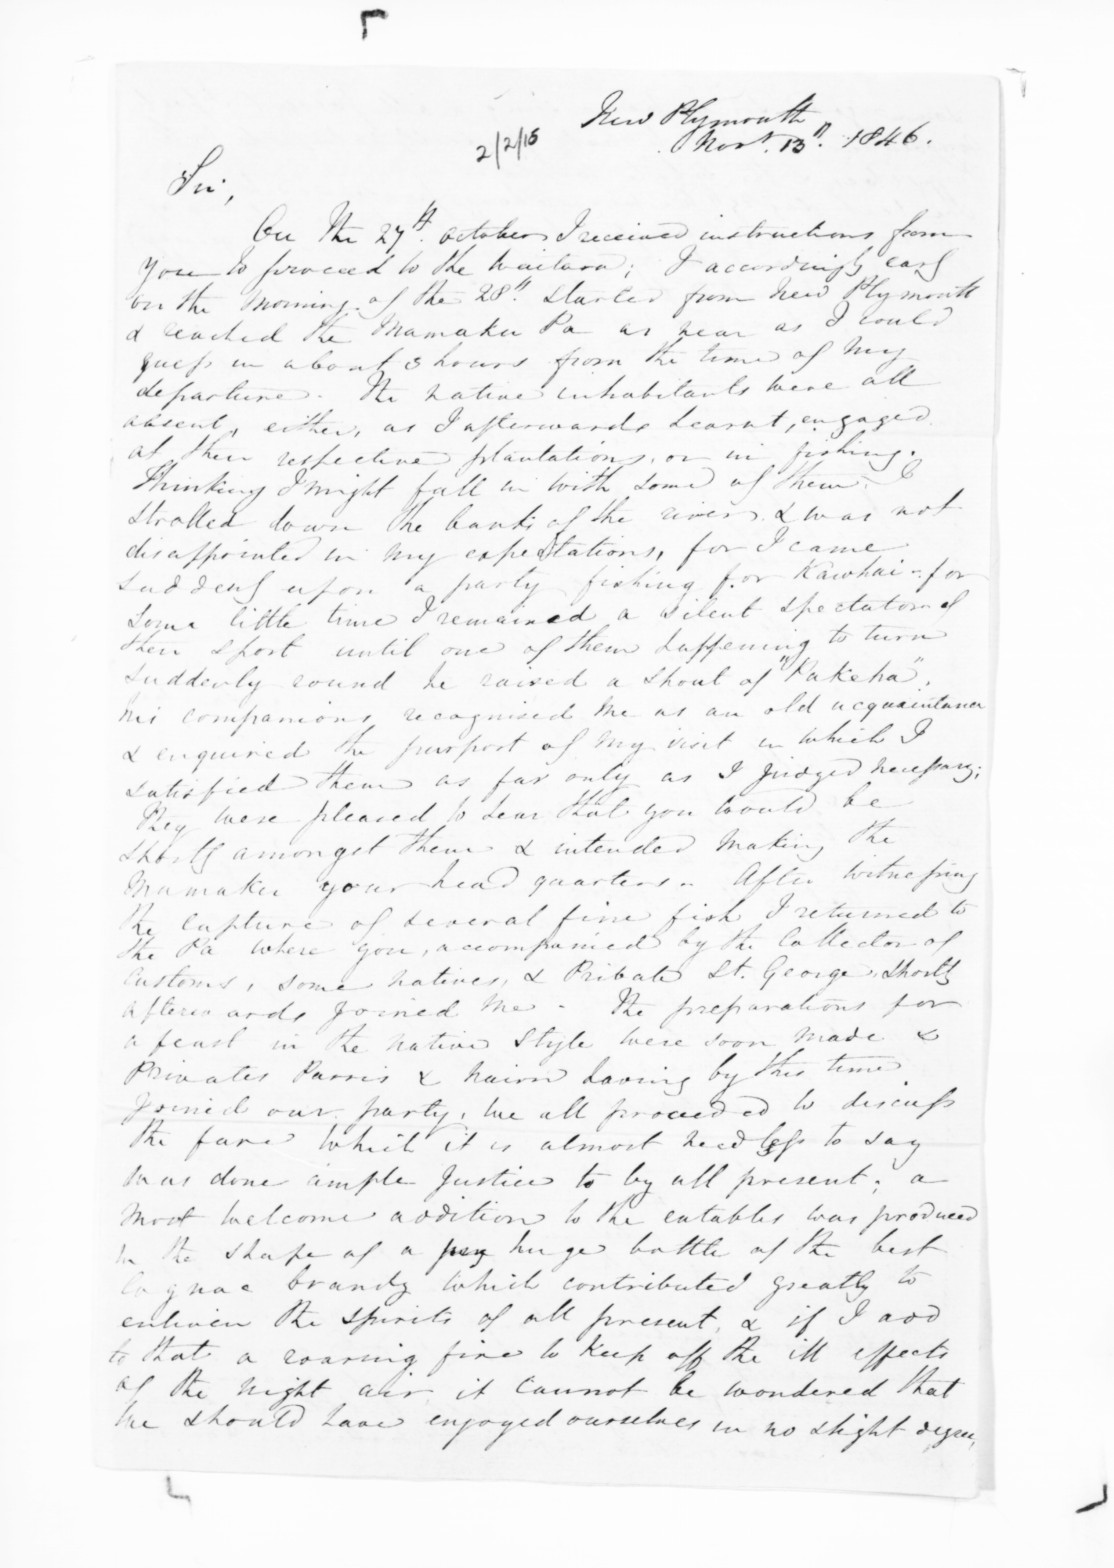 New Plymouth
Novr. 13th. 1846.
2/2/16
Sir,
On the 27th. October I received instructions from
you to proceed to the Waitara; I accordingly early
on the morning of the 28th. started from New Plymouth
& reached the Mamaku Pa as near as I could
guess in about 3 hours from the time of my
departure. The native inhabitants were all
absent, either, as I afterwards learnt, engaged
at their respective plantations, or in fishing.
Thinking I might fall in with some of them, I
strolled down the banks of the river & was not
disappointed in my expectations, for I came
suddenly upon a party fishing for Kawhai - for
some little time I remained a silent spectator of
their sport until one of them happening to turn
suddenly round he raised a shout of "Pakeha",
his companions recognised me as an old acquaintance
& enquired the purport of my visit in which I
satisfied them as far only as I judged necessary;
They were pleased to hear that you would be
shortly amongst them & intended making the
Mamaku your head quarters. After witnessing
the capture of several fine fish I returned to
the Pa where you, accompanied by the Collector of
Customs, some natives, & Private St. George, shortly
afterwards joined me - The preparations for
a feast in the native style were soon made &
Privates Parris & Nairn having by this time
joined our party, we all proceeded to discuss
the fare which it is almost needless to say
was done ample justice to by all present; a
most welcome addition to the eatables was produced
in the shape of a huge bottle of the best
Cognac brandy which contributed greatly to
enliven the spirits of all present, & if I add
to that a roaring fire to keep off the ill effects
of the night air it cannot be wondered that
we should have enjoyed ourselves in no slight degree,